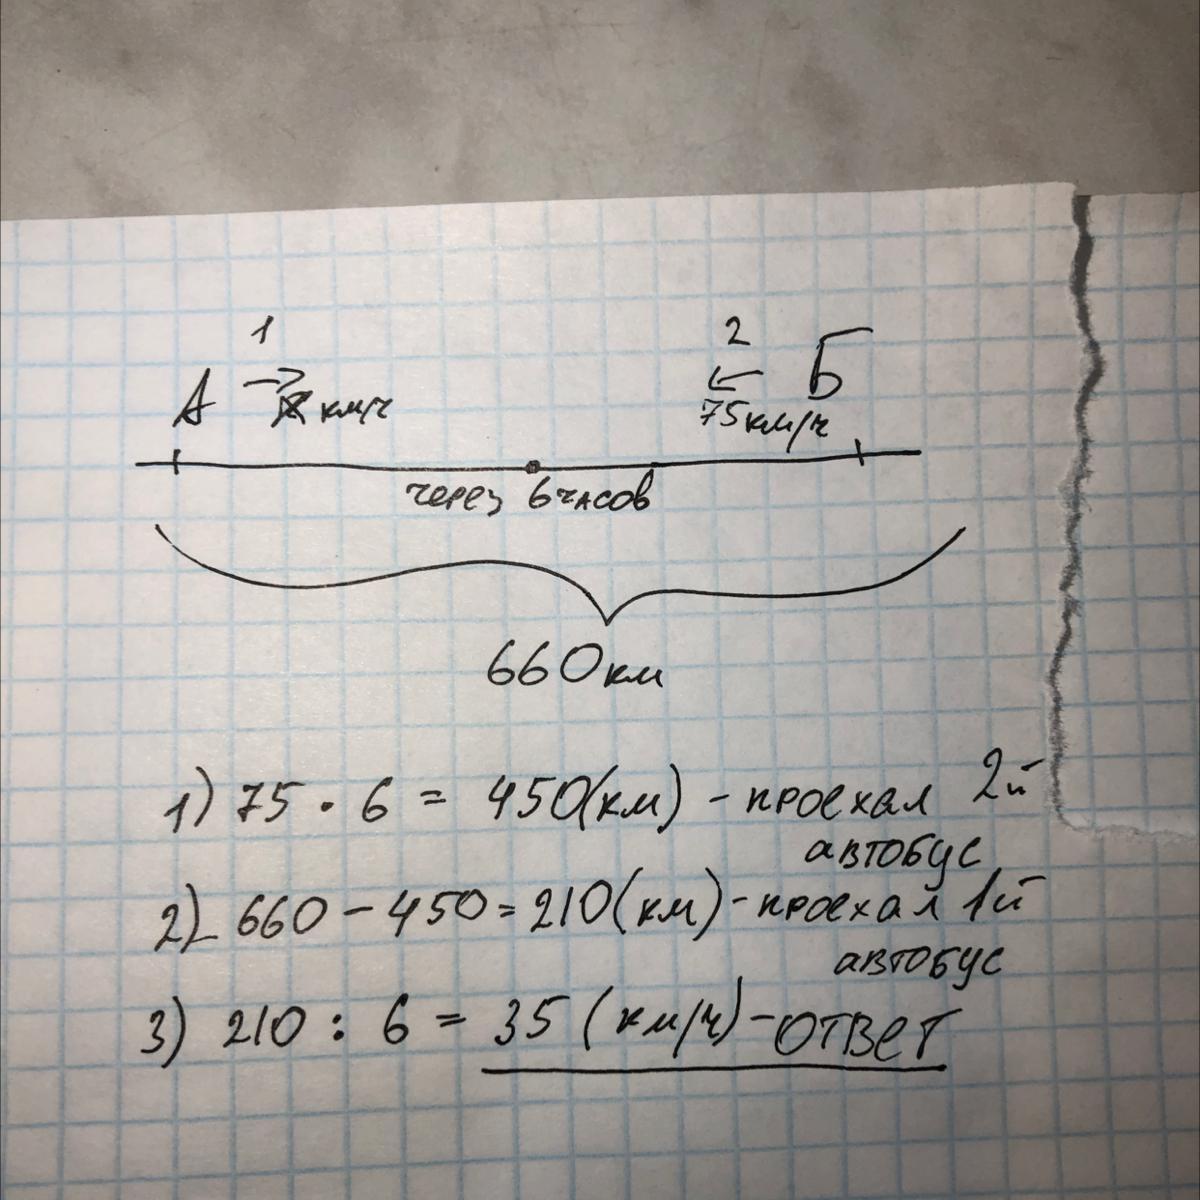 1 2
А Б
х км/ч 75 км/ч
через 6 часов
660 км
1) 75 · 6 = 450 (км) - проехал 2й
автобус
2) 660 - 450 = 210 (км) - проехал 1й
автобус
3) 210 : 6 = 35 (км/ч) - ответ